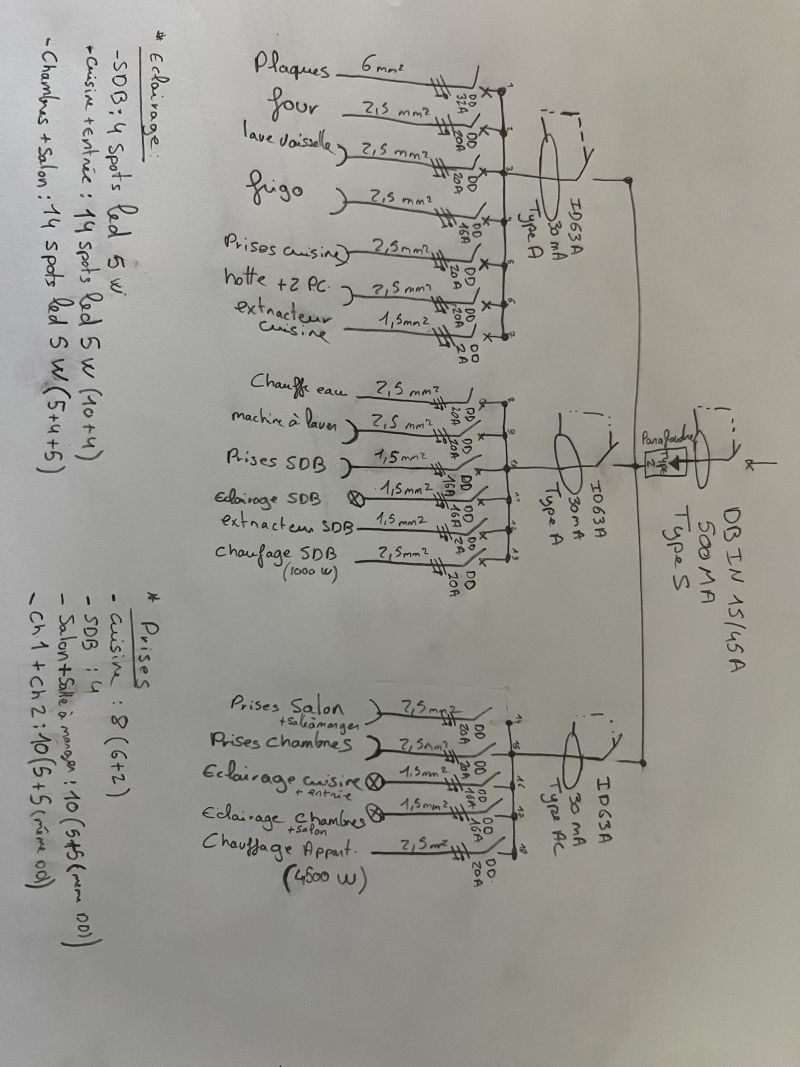 DB IN 15/45A
500 MA
Type S
Parafoudre
Type
2
ID63A
30 mA
Type A
1
2
3
4
5
6
7
Plaques 6 mm² DD 32A
four 2,5 mm² DD 20A
lave vaisselle 2,5 mm² DD 20A
frigo 2,5 mm² DD 16A
Prises cuisine 2,5 mm² DD 20A
hotte + 2 PC. 2,5 mm² DD 20A
extracteur
cuisine 1,5 mm² DD 2A
ID63A
30 mA
Type A
8
9
10
11
12
13
Chauffe eau 2,5 mm² DD 20A
machine à laver 2,5 mm² DD 20A
Prises SDB 1,5 mm² DD 16A
Eclairage SDB 1,5 mm² DD 16A
extracteur SDB 1,5 mm² DD 2A
chaufage SDB 2,5 mm² DD 20A
(1000 W)
ID63A
30 mA
Type AC
14
15
16
17
18
Prises Salon 2,5 mm² DD 20A
+ salle à manger
Prises chambres 2,5 mm² DD 20A
Eclairage cuisine 1,5 mm² DD 16A
+ entrée
Eclairage chambres 1,5 mm² DD 16A
+ salon
Chauffage Appart. 2,5 mm² DD. 20A
(4500 W)
* Eclairage :
- SDB : 4 spots led 5 W
+ cuisine + entrée : 14 spots led 5 W (10+4)
- Chambres + Salon : 14 spots led 5 W (5+4+5)
* Prises
- cuisine : 8 (6+2)
- SDB : 4
- Salon + Salle à manger : 10 (5+5 (même DD))
- Ch1 + Ch2 : 10 (5+5 (même DD)